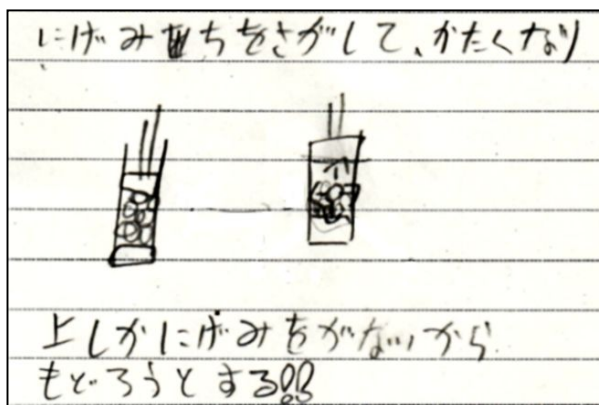 にげみちをさがして、かたくなり
上しかにげみちがないから
もどろうとする!!